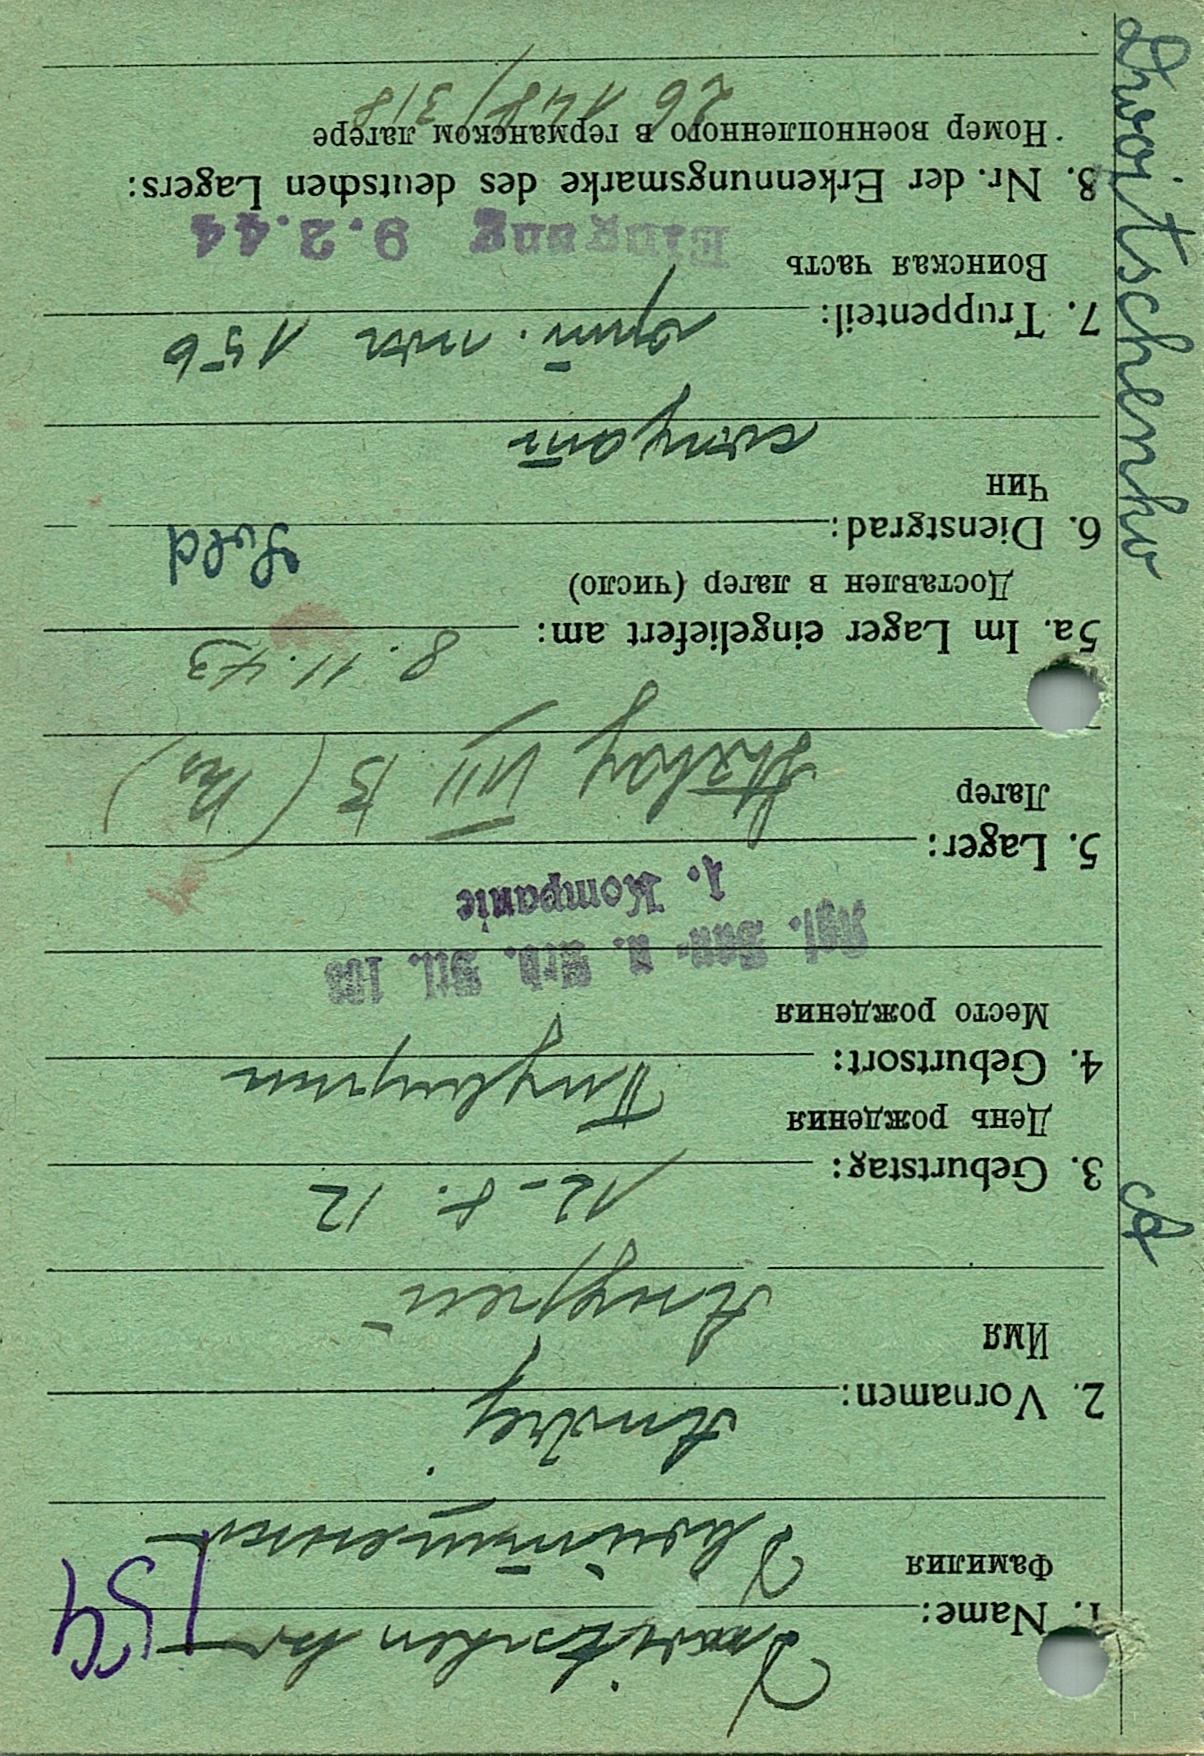 Dwoitschenko
1. Name: Dwoitschenko
Фамилия Двойтченко
154
2. Vornamen: Andrej
Имя Андрей
3. Geburtstag: 12. 8. 12
День рождения
4. Geburtsort:
Место рождения
Kgf. Bau- u. Arb. Btl. 108
1. Kompanie
5. Lager: Stalag VIII B
Лагер
5a. Im Lager eingeliefert am: 8. 11. 43
Доставлен в лагер (число)
6. Dienstgrad: Sold
Чин солдат
7. Truppenteil: 156
Воинская часть
Eingang 9.2.44
8. Nr. der Erkennungsmarke des deutschen Lagers:
Номер военнопленного в германском лагере
26 148/318